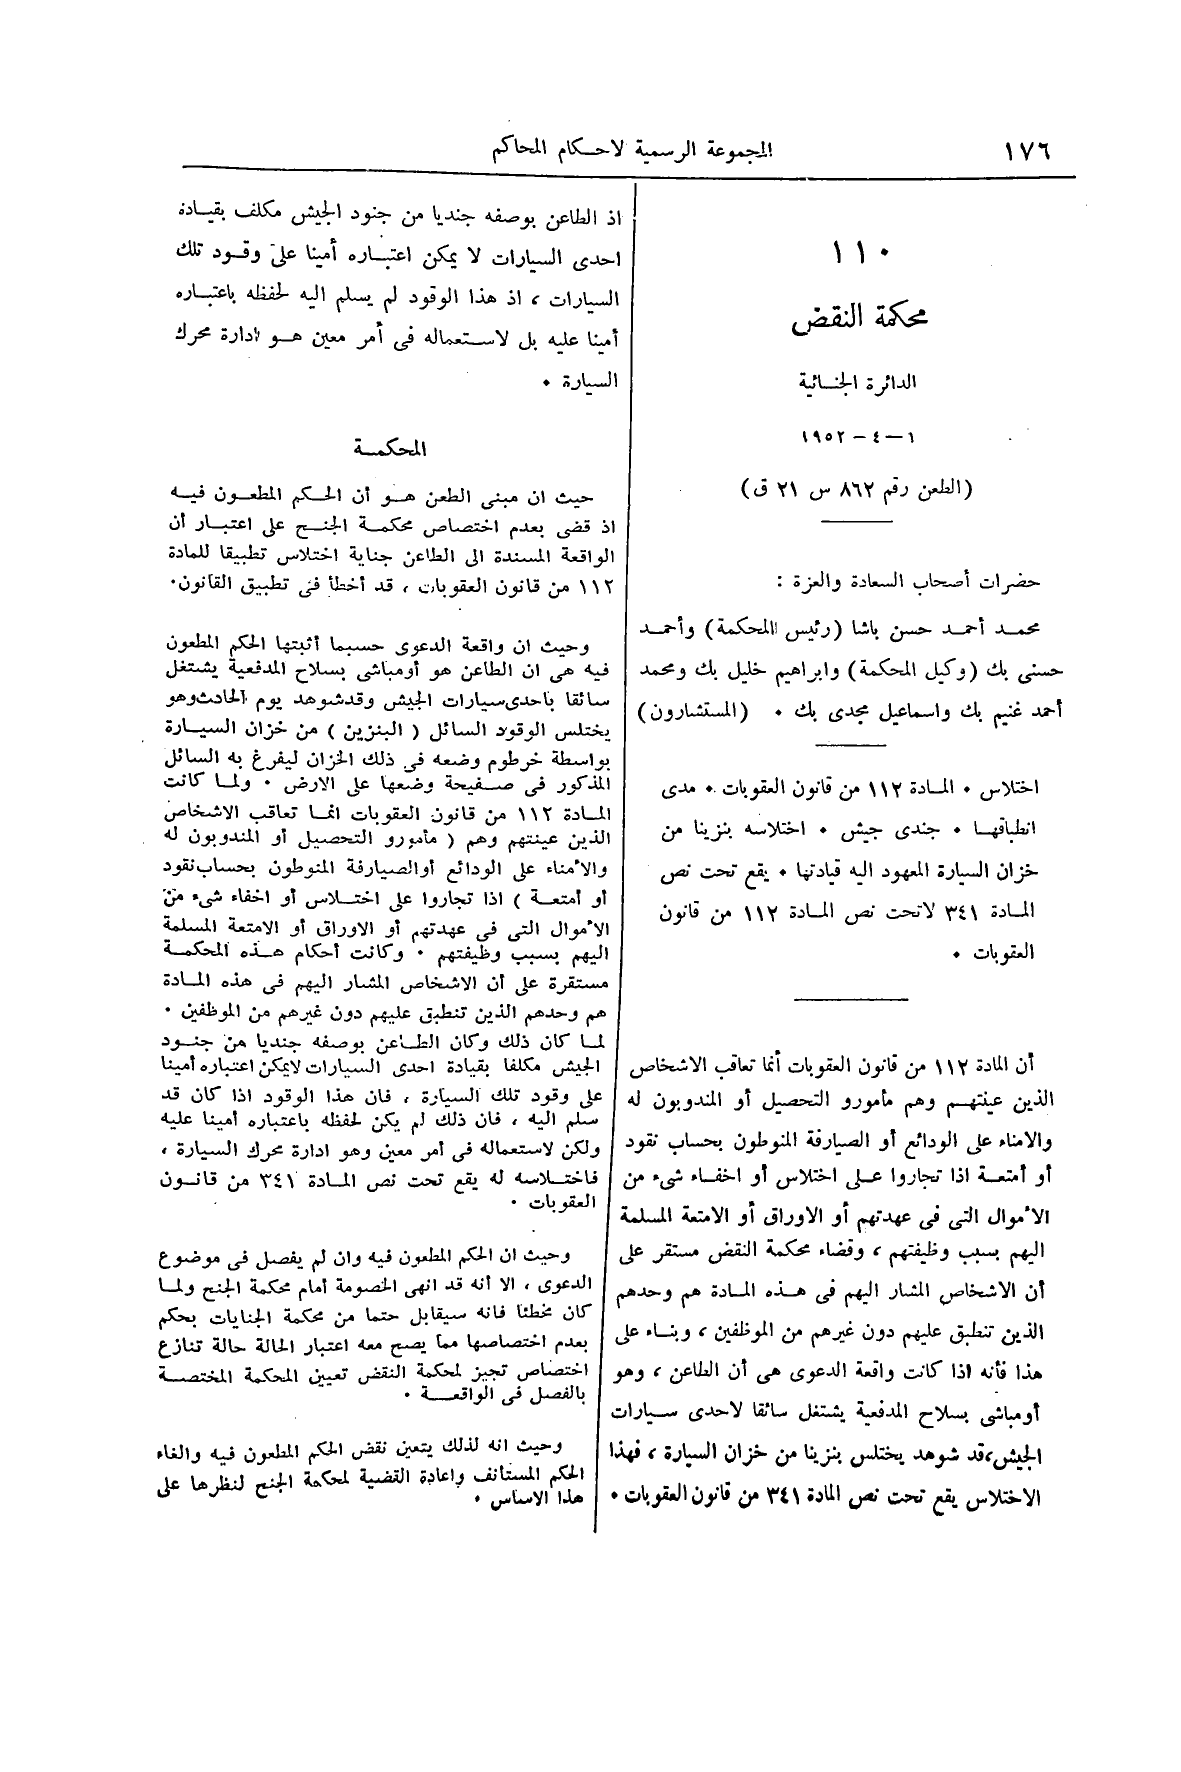 ١٧٦
المجموعة الرسمية لاحكام المحاكم
١١٠
محكمة النقض
الدائرة الجنائية
١ – ٤ – ١٩٥٢
(الطعن رقم ٨٦٢ س ٢١ ق)
حضرات أصحاب السعادة والعزة :
محمد أحمد حسن باشا (رئيس المحكمة) وأحمد
حسنى بك (وكيل المحكمة) وابراهيم خليل بك ومحمد
أحمد غنيم بك واسماعيل مجدى بك ٠ (المستشارون)
اختلاس ٠ المادة ١١٢ من قانون العقوبات ٠ مدى
انطباقها ٠ جندى جيش ٠ اختلاسه بنزينا من
خزان السيارة المعهود اليه قيادتها ٠ يقع تحت نص
المادة ٣٤١ لاتحت نص المادة ١١٢ من قانون
العقوبات ٠
أن المادة ١١٢ من قانون العقوبات أنما تعاقب الاشخاص
الذين عينتهم وهم مأمورو التحصيل أو المندوبون له
والامناء على الودائع أو الصيارفة المنوطون بحساب نقود
أو أمتعة اذا تجاروا على اختلاس أو اخفاء شىء من
الأموال التى فى عهدتهم أو الاوراق أو الامتعة المسلمة
اليهم بسبب وظيفتهم ، وقضاء محكمة النقض مستقر على
أن الاشخاص المشار اليهم فى هذه المادة هم وحدهم
الذين تنطبق عليهم دون غيرهم من الموظفين ، وبناء على
هذا فأنه اذا كانت واقعة الدعوى هى أن الطاعن ، وهو
أومباشى بسلاح المدفعية يشتغل سائقا لاحدى سيارات
الجيش،قد شوهد يختلس بنزينا من خزان السيارة ، فهذا
الاختلاس يقع تحت نص المادة ٣٤١ من قانون العقوبات ٠
اذ الطاعن بوصفه جنديا من جنود الجيش مكلف بقيادة
احدى السيارات لا يمكن اعتباره أمينا على وقود تلك
السيارات ، اذ هذا الوقود لم يسلم اليه لحفظه باعتباره
أمينا عليه بل لاستعماله فى أمر معين هو ادارة محرك
السيارة ٠
المحكمة
حيث ان مبنى الطعن هو أن الحكم المطعون فيه
اذ قضى بعدم اختصاص محكمة الجنح على اعتبار أن
الواقعة المسندة الى الطاعن جناية اختلاس تطبيقا للمادة
١١٢ من قانون العقوبات ، قد أخطأ فى تطبيق القانون٠
وحيث ان واقعة الدعوى حسبما أثبتها الحكم المطعون
فيه هى ان الطاعن هو أومباشى بسلاح المدفعية يشتغل
سائقا باحدى سيارات الجيش وقد شوهد يوم الحادث وهو
يختلس الوقود السائل ( البنزين ) من خزان السيارة
بواسطة خرطوم وضعه فى ذلك الخزان ليفرغ به السائل
المذكور فى صفيحة وضعها على الارض ٠ ولما كانت
المادة ١١٢ من قانون العقوبات انما تعاقب الاشخاص
الذين عينتهم وهم ( مأمورو التحصيل أو المندوبون له
والأمناء على الودائع أوالصيارفة المنوطون بحساب نقود
أو أمتعة ) اذا تجاروا على اختلاس أو اخفاء شىء من
الأموال التى فى عهدتهم أو الاوراق أو الامتعة المسلمة
اليهم بسبب وظيفتهم ٠ وكانت أحكام هذه المحكمة
مستقرة على أن الاشخاص المشار اليهم فى هذه المادة
هم وحدهم الذين تنطبق عليهم دون غيرهم من الموظفين ٠
لما كان ذلك وكان الطاعن بوصفه جنديا من جنود
الجيش مكلفا بقيادة احدى السيارات لايمكن اعتباره أمينا
على وقود تلك السيارة ، فان هذا الوقود اذا كان قد
سلم اليه ، فان ذلك لم يكن لحفظه باعتباره أمينا عليه
ولكن لاستعماله فى أمر معين وهو ادارة محرك السيارة ،
فاختلاسه له يقع تحت نص المادة ٣٤١ من قانون
العقوبات ٠
وحيث ان الحكم المطعون فيه وان لم يفصل فى موضوع
الدعوى ، الا أنه قد انهى الخصومة أمام محكمة الجنح ولما
كان مخطئا فانه سيقابل حتما من محكمة الجنايات بحكم
بعدم اختصاصها مما يصح معه اعتبار الحالة حالة تنازع
اختصاص تجيز لمحكمة النقض تعيين المحكمة المختصة
بالفصل فى الواقعة ٠
وحيث انه لذلك يتعين نقض الحكم المطعون فيه والغاء
الحكم المستأنف واعادة القضية لمحكمة الجنح لنظرها على
هذا الاساس ٠